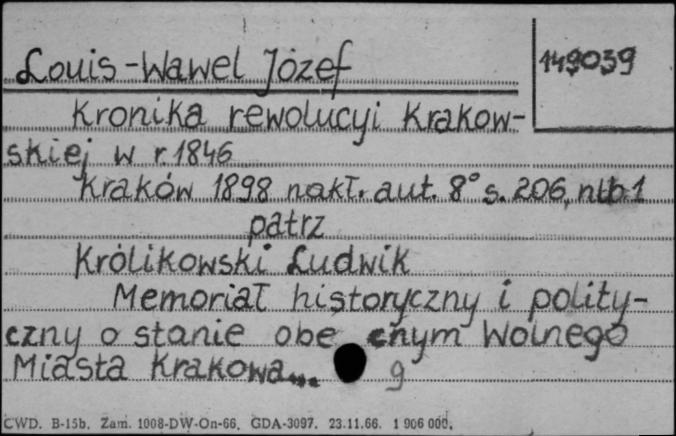 Louis-Wawel Józef
149039
Kronika rewolucyi Krakow-
skiej w r. 1846
Kraków 1898 nakł. aut. 8° s. 206, nlb. 1
patrz
Królikowski Ludwik
Memoriał historyczny i polity-
czny o stanie obe cnym Wolnego
Miasta Krakowa...
9
CWD. B-15b. Zam. 1008-DW-On-66. GDA-3097. 23.11.66. 1 906 000.